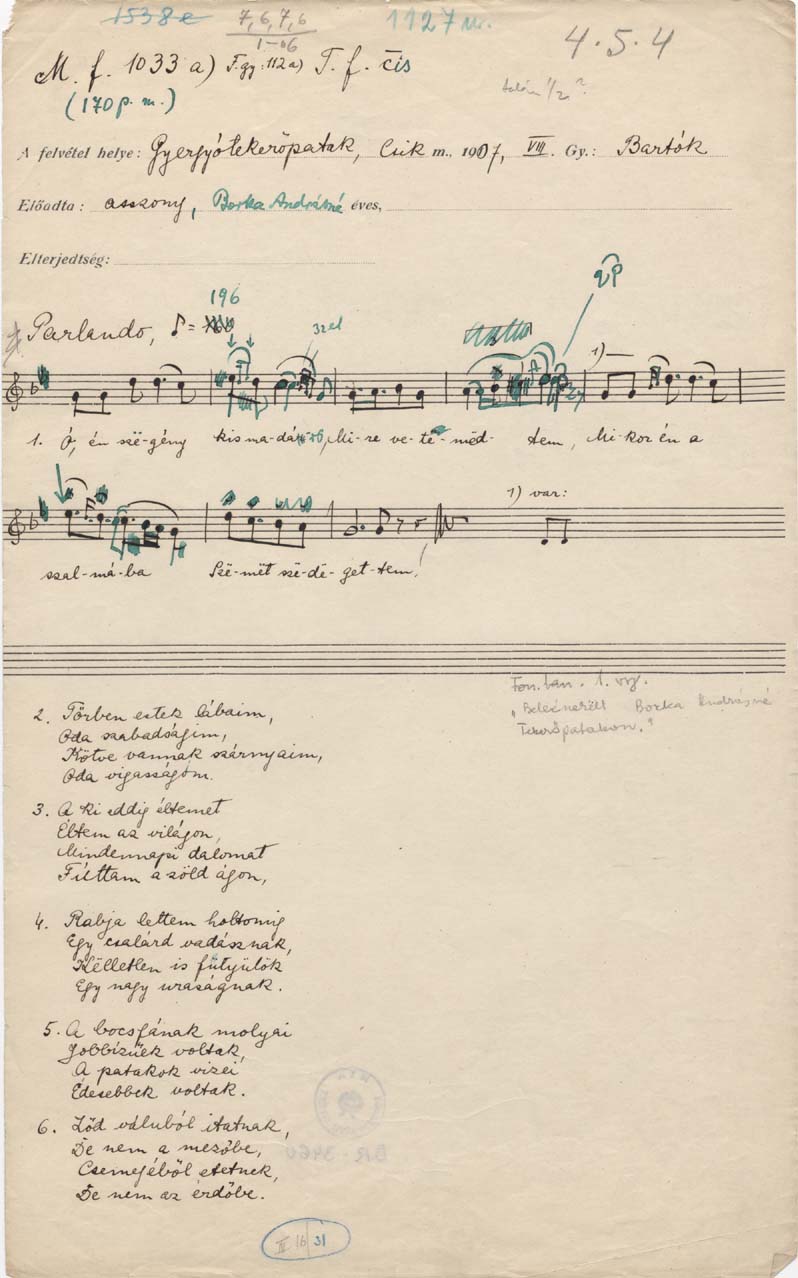 1538e 7, 6, 7, 6 1127w.
1-b6
4. 5. 4
M. f. 1033 a) F. gy. 112a) T. f. čis
(170 p. m.)
talán 1/2?
A felvétel helye: Gyergyótekerőpatak, Csik m., 1907, VIII. Gy.: Bartók
Előadta: asszony, Borka Andrásné éves,
Elterjedtség:
196
Parlando, ♪ =
1)
1. Ó, én szë-gény kis ma-dá- Mi-re ve-te-mëd-tem, Mi-kor én a
1) var:
szal-má-ba Szë-mët szë-dë-get-tem!
Fon. ban. 1. vsz.
"Beleénekelt Borka Andrásné
Tekerőpatakon."
2. Tőrben estek lábaim,
Oda szabadságim,
Kötve vannak szárnyaim,
Oda vigasságom.
3. A ki eddig éltemet
Éltem az világon,
Mindennapi dalomat
Fúttam a zöld ágon,
4. Rabja lettem holtomig
Egy csalárd vadásznak,
Këlletlen is fütyülök
Egy nagy uraságnak.
5. A bocsfának molyai
Jobbizűek voltak,
A patakok vizei
Édesebbek voltak.
6. Zöd váluból itatnak,
De nem a mezőbe,
Csemegéből etetnek,
De nem az erdőbe.
BR-3460
II 16 31